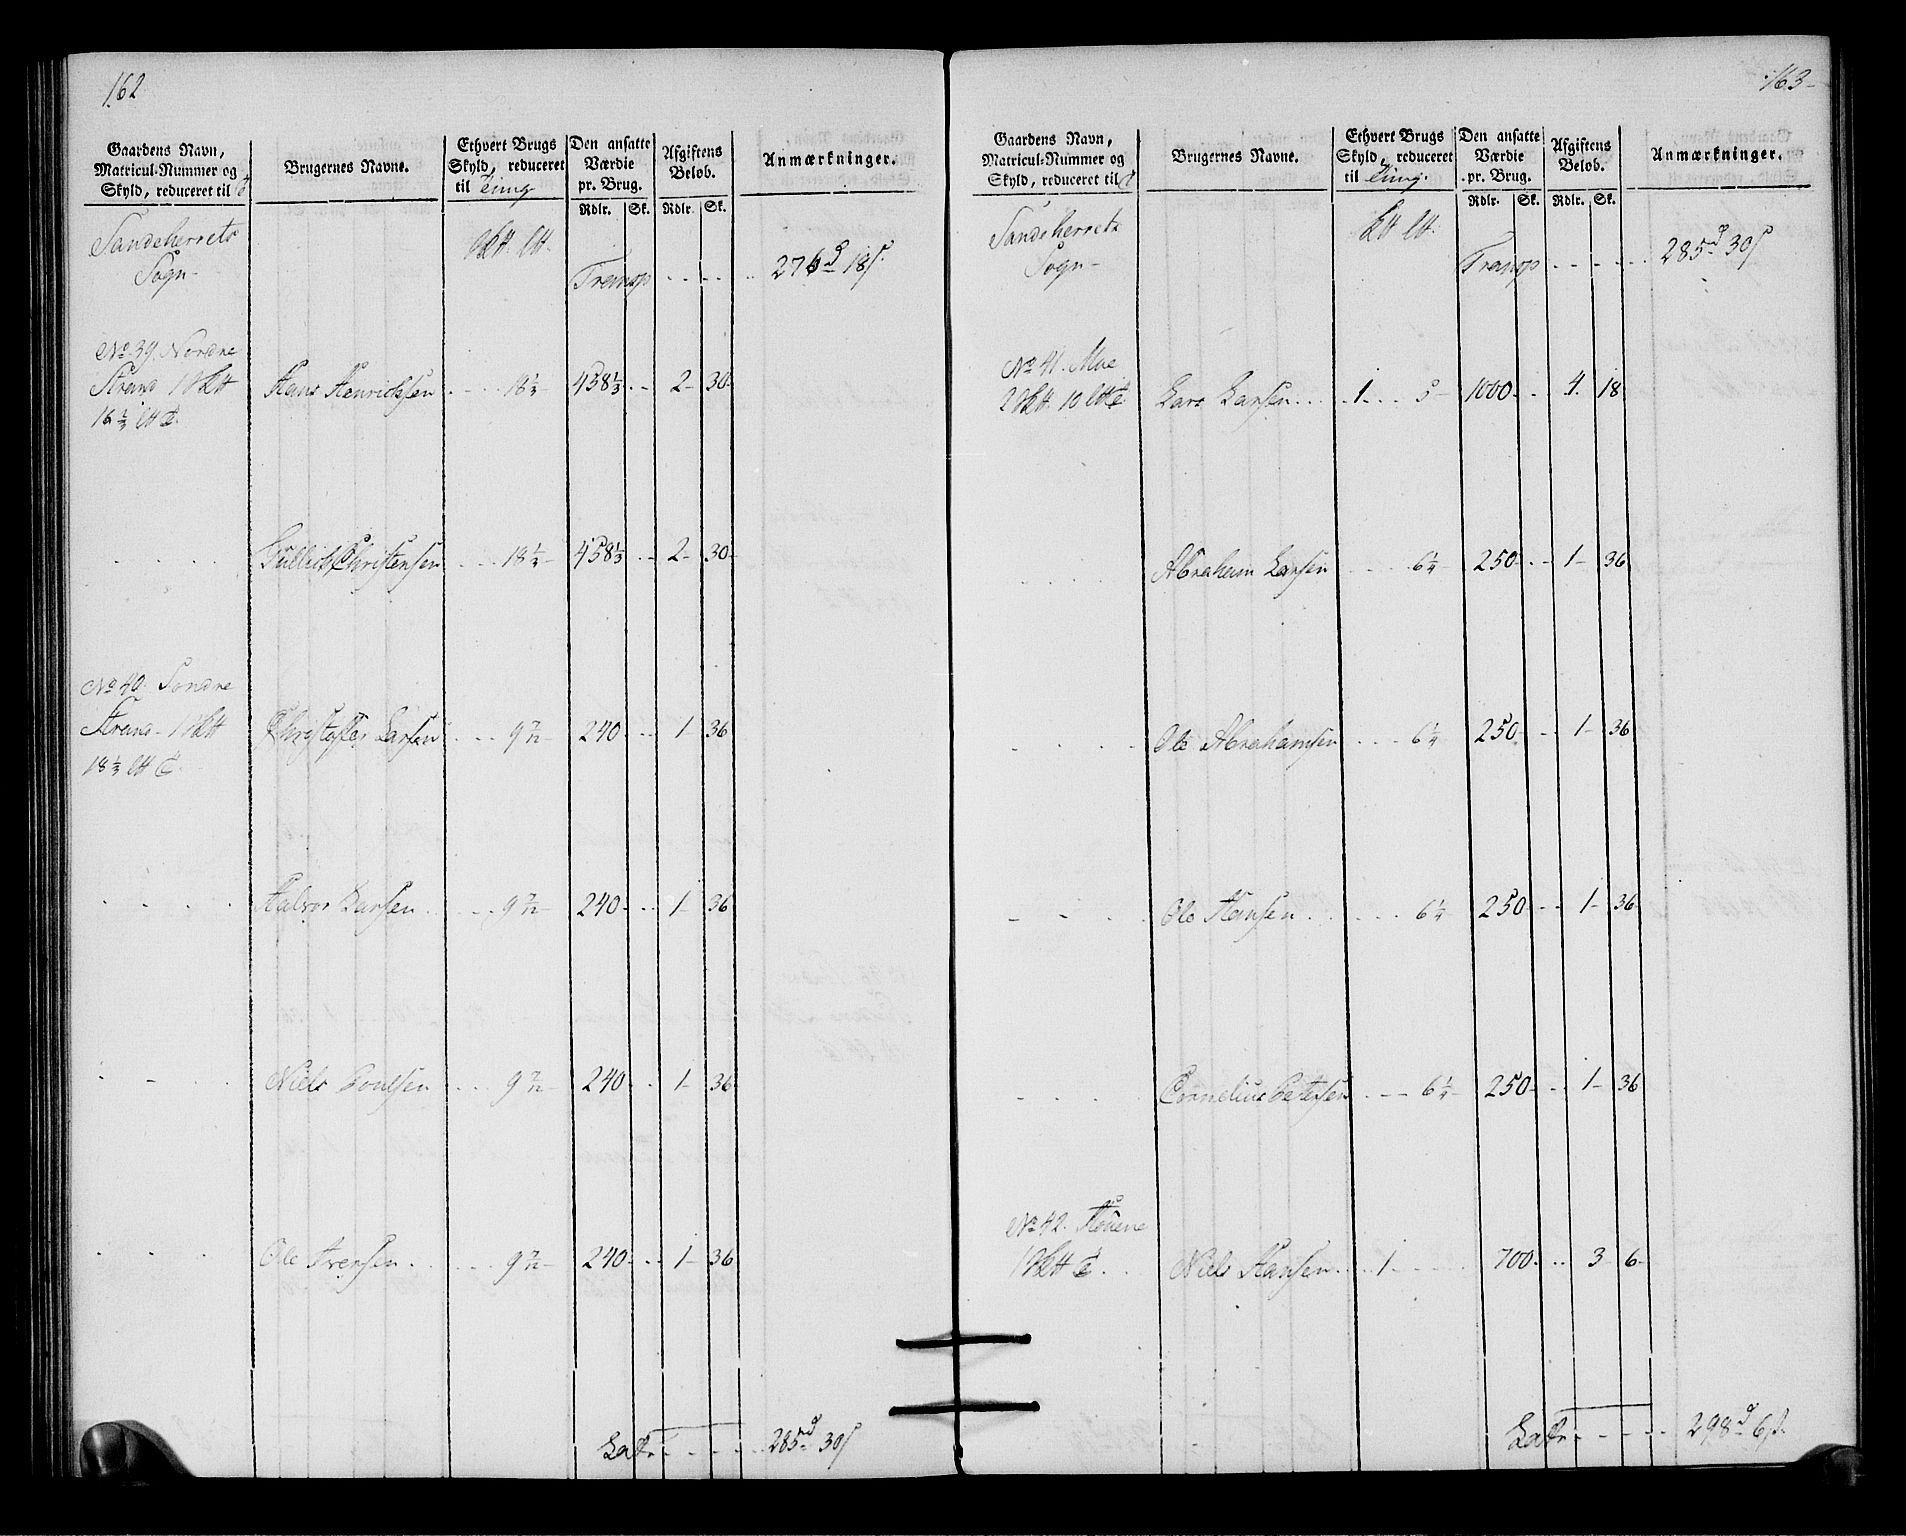 162
Gaardens Navn,
Matricul-Nummer og
Skyld, reduceret til
Brugernes Navne.
Ethvert Brugs
Skyld, reduceret
til Tung
Den ansatte
Værdie
pr. Brug.
Rdlr. Sk.
Afgiftens
Beløb.
Rdlr. Sk.
Anmærkninger.
Sandeherrets
Sogn-
Transp ..... 276 18
No 39. Nordre
Strand 1
Hans Henrichsen .... 18 1/3 458 1/3 .. 2- 30-
16
Gullich Christensen ... 18 458 1/3 .. 2- 30-
No 40. Søndre
Strand 1
Christoffer Larsen ... 9 7/12 240 ... 1- 36
18
Halvor Larsen ... 9 7/12 240 ... 1- 36
Niels Poulsen ... 9 7/12 240 ... 1- 36
Ole Iversen ... 9 7/12 240 ... 1- 36
Latr ..... 285 30
163
Gaardens Navn,
Matricul-Nummer og
Skyld, reduceret til
Brugernes Navne.
Ethvert Brugs
Skyld, reduceret
til Tung
Den ansatte
Værdie
pr. Brug.
Rdlr. Sk.
Afgiftens
Beløb.
Rdlr. Sk.
Anmærkninger.
Sandeherrets
Sogn-
Transp ..... 285 30
No 41. Moe
2 10
Lars Larsen .... 1 ... 5- 1000 ... 4. 18
Abraham Larsen .... 6 1/4 250 ... 1- 36
Ole Abrahamsen ... 6 1/4 250 ... 1- 36
Ole Hansen .... 6 1/4 250 ... 1- 36
Cornelius Petersen ... 6 1/4 250 ... 1- 36
No 42.
1
Niels Hansen ... 1 .... 700 ... 3 6-
Latr ..... 298 6